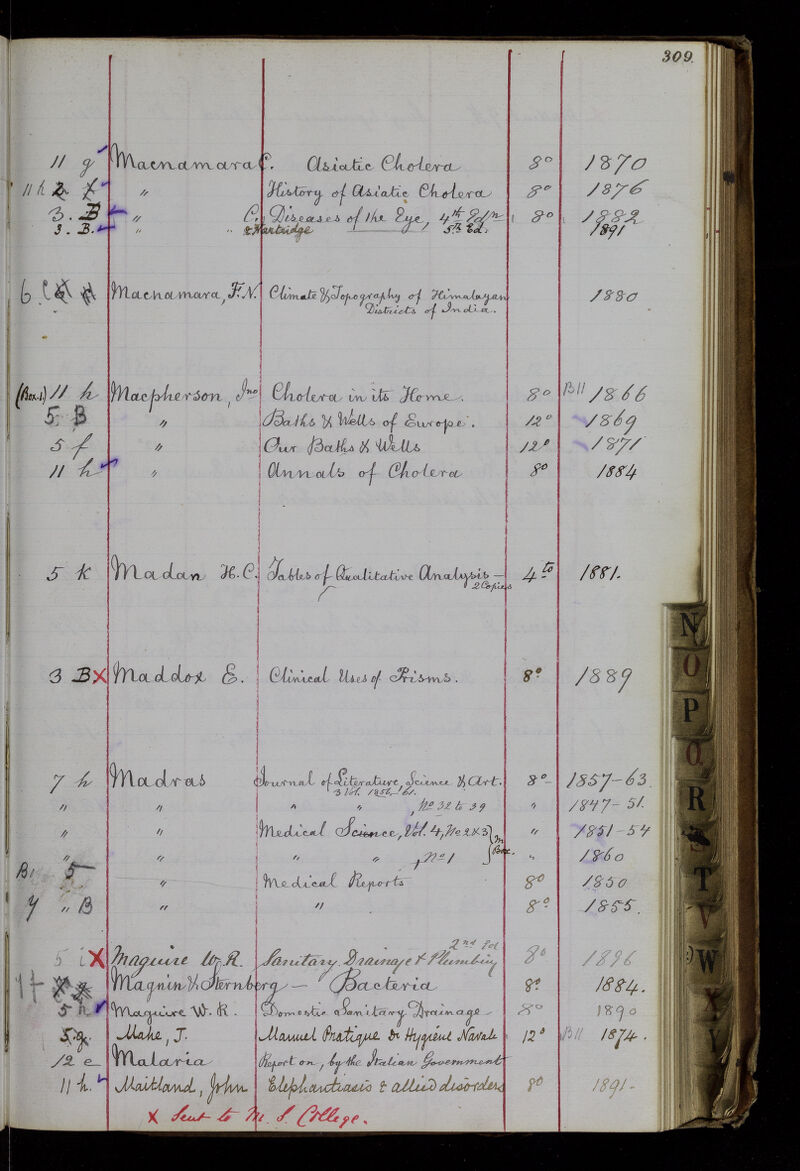 309
11 g Macnamara C. Asiatic Cholera 8° 1870
11 h " History of Asiatic Cholera 8° 1876
3. B " C. Diseases of the Eye, 4th Edn 8° 1882
3. B. " " & Hartridge 5th Ed. 1891
6 C Macnamara, F.N. Climate & Topography of Himalayan 1880
Districts of India.
(Box 1) 11 h Macpherson, Jno Cholera in its Home. 8° B11 1866
5 B " Baths & Wells of Europe. 12° 1869
5 f " Our Baths & Wells 12° 1871
11 h " Annals of Cholera 8° 1884
5 k Madan H.C. Tables of Qualitative Analysis — 4to 1881.
2 Copies
3 B X Maddox E. Clinical Uses of Prisms. 8° 1889
7 h Madras Journal of Literature, Science & Art. 8° 1857-63
3 Vol. 1856-'61.
" " " " , No 32 to 39 " 1847-51.
" " Medical Science, Vol. 4, No 2 & 3 } In " 1851-54
" " " " , No 1 } Box. " 1860
B1 5 " Medical Reports 8° 1850
7 " B " " 8° 1855.
2nd Ed
5 i X Maguire W.R. Sanitary Drainage & Plumbing 8° 1896
Magnin & Sternberg — Bacteria 8° 1884.
5 h Maguire W.R. Domestic Sanitary Drainage 8° 1890
5.g. Mahé, J. Manuel Pratique D' Hygiène Navale 12° B11 1874.
12 e Malaria Report on, by the Italian Government
11 h. Maitland, John Elephantiasis & allied disorders 8° 1891-
X Sent to M. S. College.
N
O
P
Q
R
S
T
V
W
X
Y